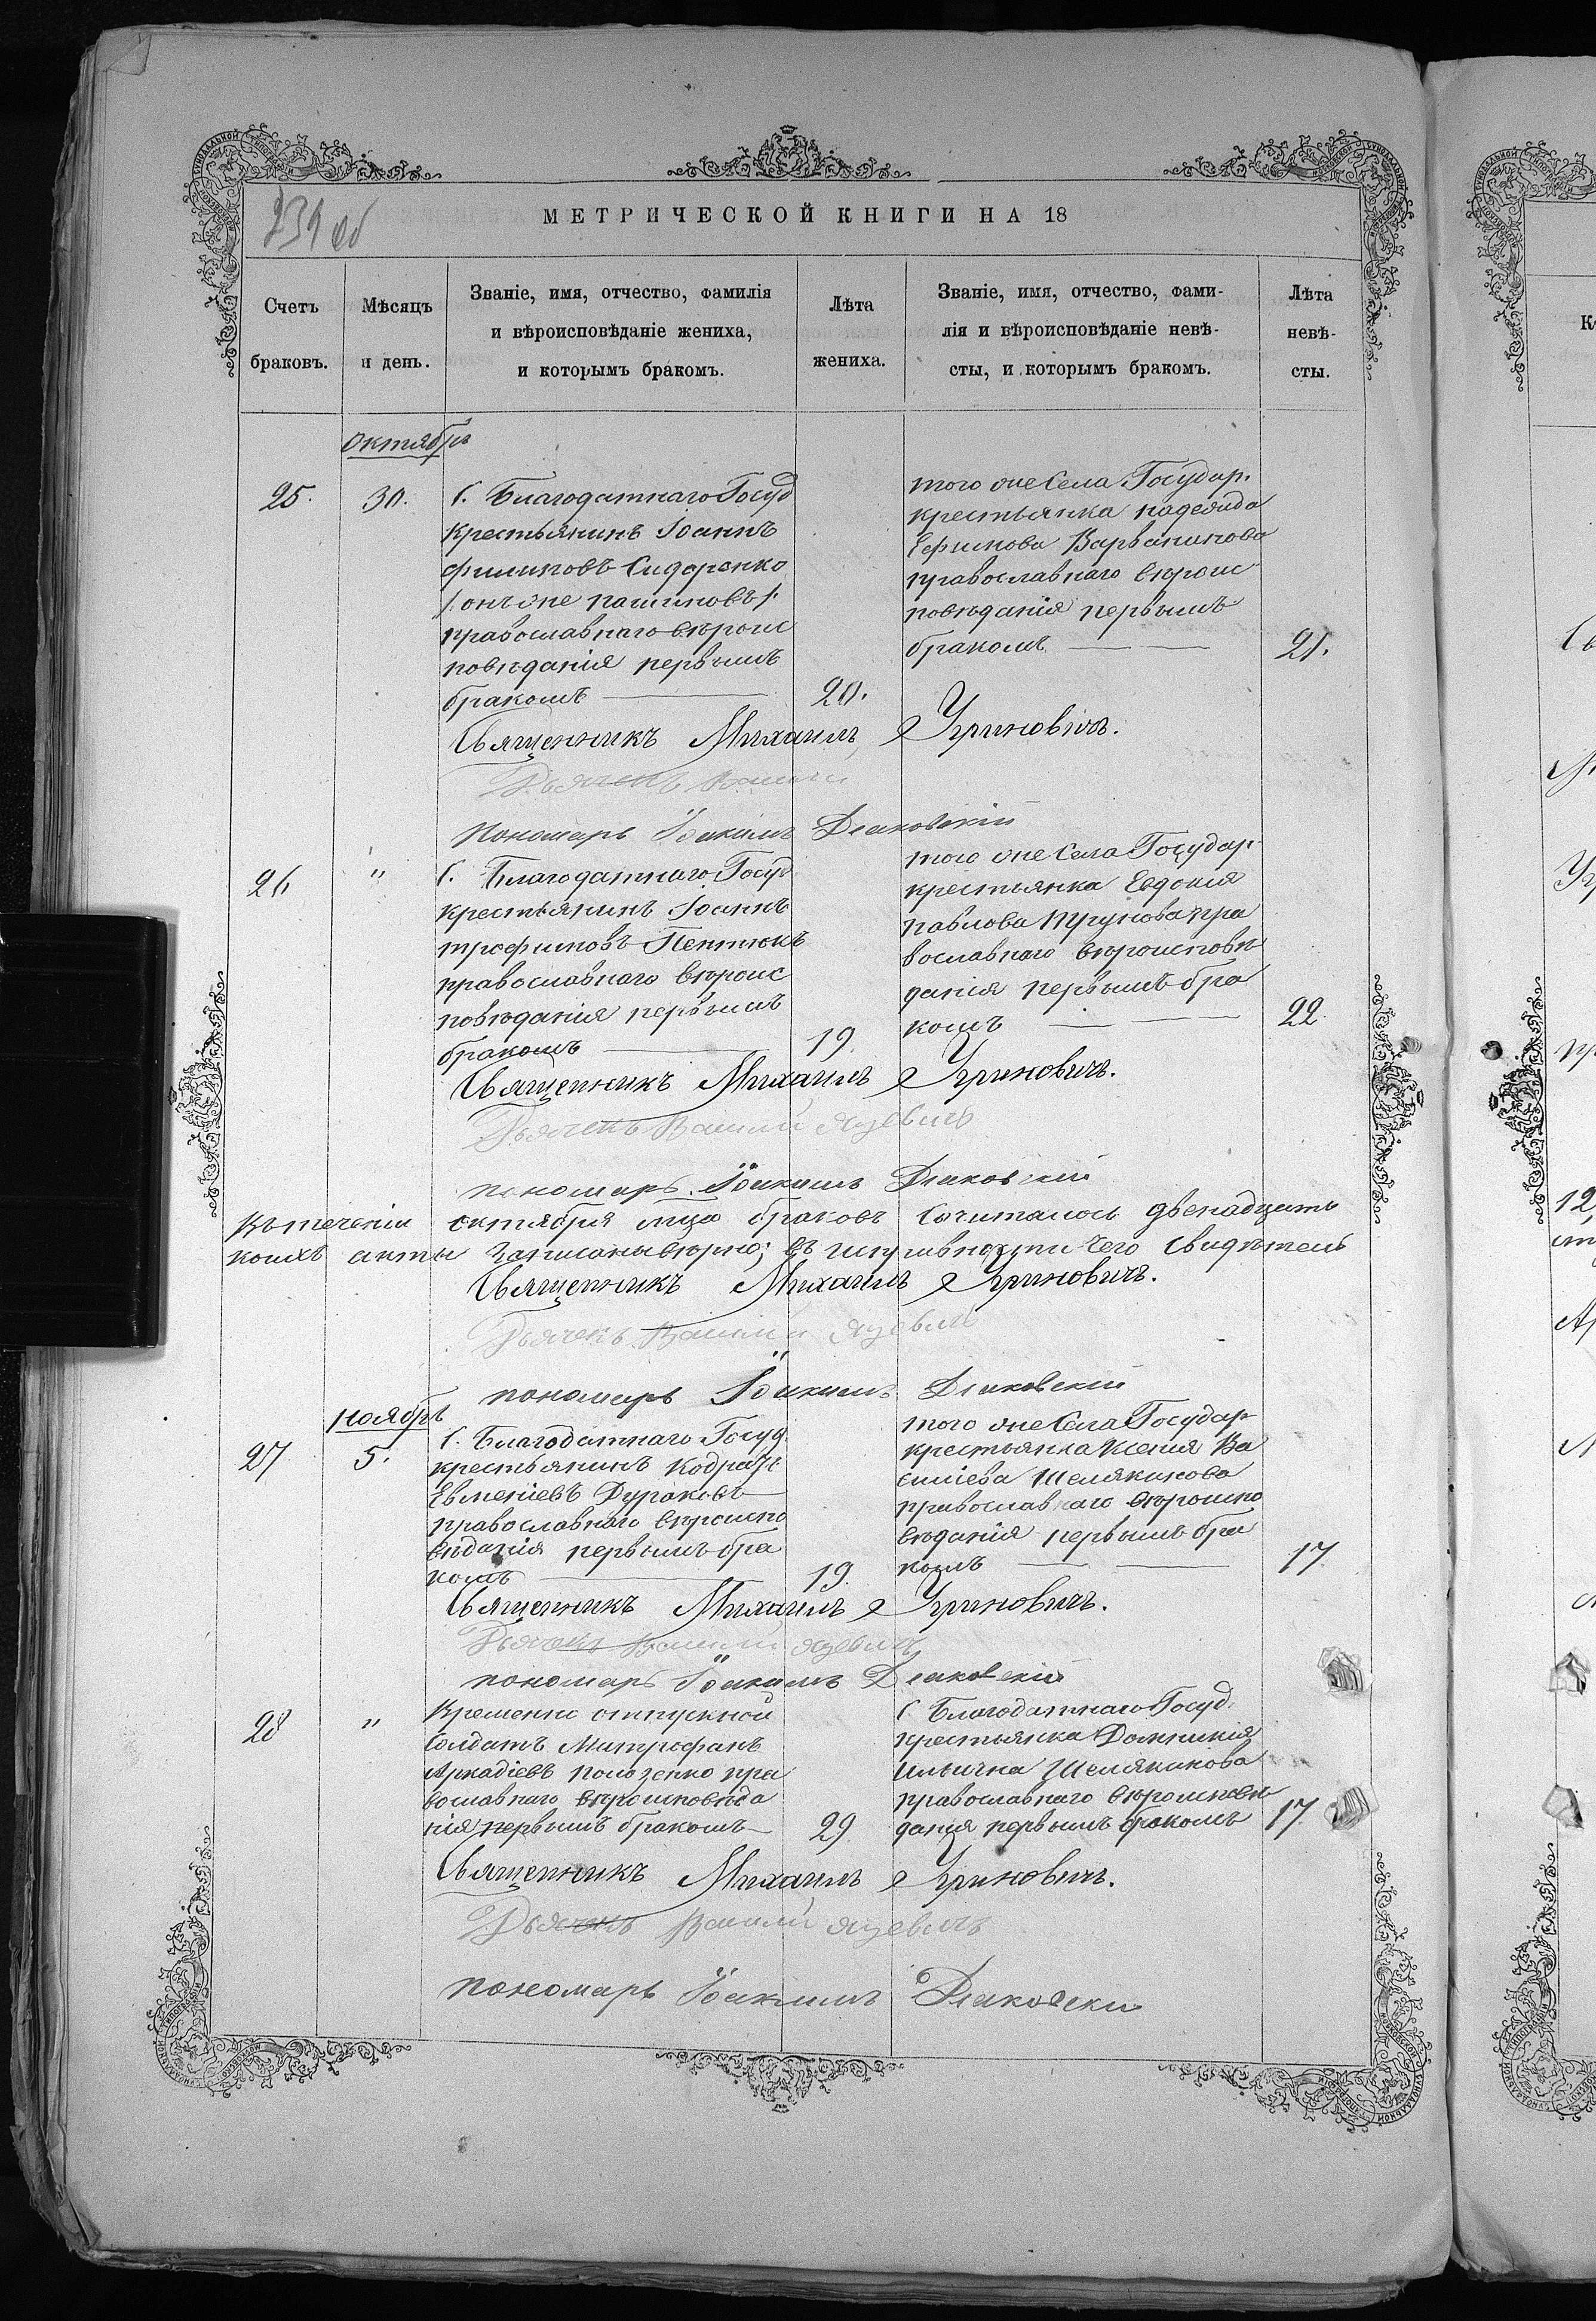 239 об
МЕТРИЧЕСКОЙ КНИГИ НА 18
Счетъ браковъ.
Мѣсяцъ и день.
Званіе, имя, отчество, фамилія
и вѣроисповѣданіе жениха,
и которымъ бракомъ.
Лѣта жениха.
Званіе, имя, отчество, фами-
лія и вѣроисповѣданіе невѣ-
сты, и которымъ бракомъ.
Лѣта невѣ-
сты.
Октябрь
25.
30.
С. Благодатнаго Госуд
крестьянинъ Іоаннъ
Филиповъ Сидоренко
/:онъ же Пашиновъ/:
православнаго вѣроис
повѣданія первымъ
бракомъ
20.
того же Села Государ.
крестьянка Надежда
Ефимова Варванинова
православнаго вѣроис
повѣданія первымъ
бракомъ
21.
Священникъ Михаилъ Угриновичъ.
Дьячекъ Василій
Пономарь Іоакимъ Дьяковскій
26
"
С. Благодатнаго Госуд
крестьянинъ Іоаннъ
Трофимовъ Пентюкъ
православнаго вѣроис
повѣданія первымъ
бракомъ
19.
того же Села Государ
крестьянка Евдокія
Павлова Пугунова пра
вославнаго вѣроисповѣ
данія первымъ бра
комъ
22.
Священникъ Михаилъ Угриновичъ.
Дьячекъ Василій Яцевичъ
пономарь Іоакимъ Дьяковскій
Въ теченіи октября мца браковъ сочиталось двенадцать
коихъ акты записаны вѣрно; въ чего свидѣтель
Священникъ Михаилъ Угриновичъ.
Дьячекъ Василій Яцевичъ
пономарь Іоакимъ Дьяковскій
Ноябрь
27
5.
С. Благодатнаго Госуд.
крестьянинъ Кодратъ
Евменіевъ Дураковъ
православнаго вѣроиспо
вѣданія первымъ бра
комъ
19.
того же Села Государ
крестьянка Ксенія Ва
силіева Шелякинова
православнаго вѣроиспо
вѣданія первымъ бра
комъ
17
Священникъ Михаилъ Угриновичъ.
Дьячекъ Василій Яцевичъ
пономарь Іоакимъ Дьяковскій
28
"
Временно отпускной
Солдатъ Митрофанъ
Аркадіевъ Полозенко пра
вославнаго вѣроисповѣда
нія первымъ бракомъ
29
С. Благодатнаго Госуд.
крестьянка Домникія
Ильична Шелякинова
православнаго вѣроисповѣ
данія первымъ бракомъ
17.
Священникъ Михаилъ Угриновичъ.
Дьячекъ Василій Яцевичъ
пономарь Іоакимъ Дьяковски